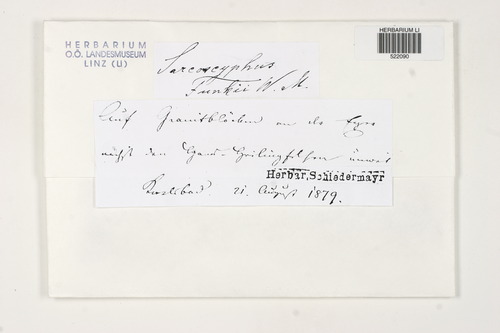 HERBARIUM
O.Ö. LANDESMUSEUM
LINZ (LI)
HERBARIUM LI
522090
Sarcoscyphus
Funkii W. M.
Auf Granitblöcken an der Eger
nächst den Hans-Heilingfelsen unweit
Herbar, Schiedermayr
Karlsbad 21. August 1879.